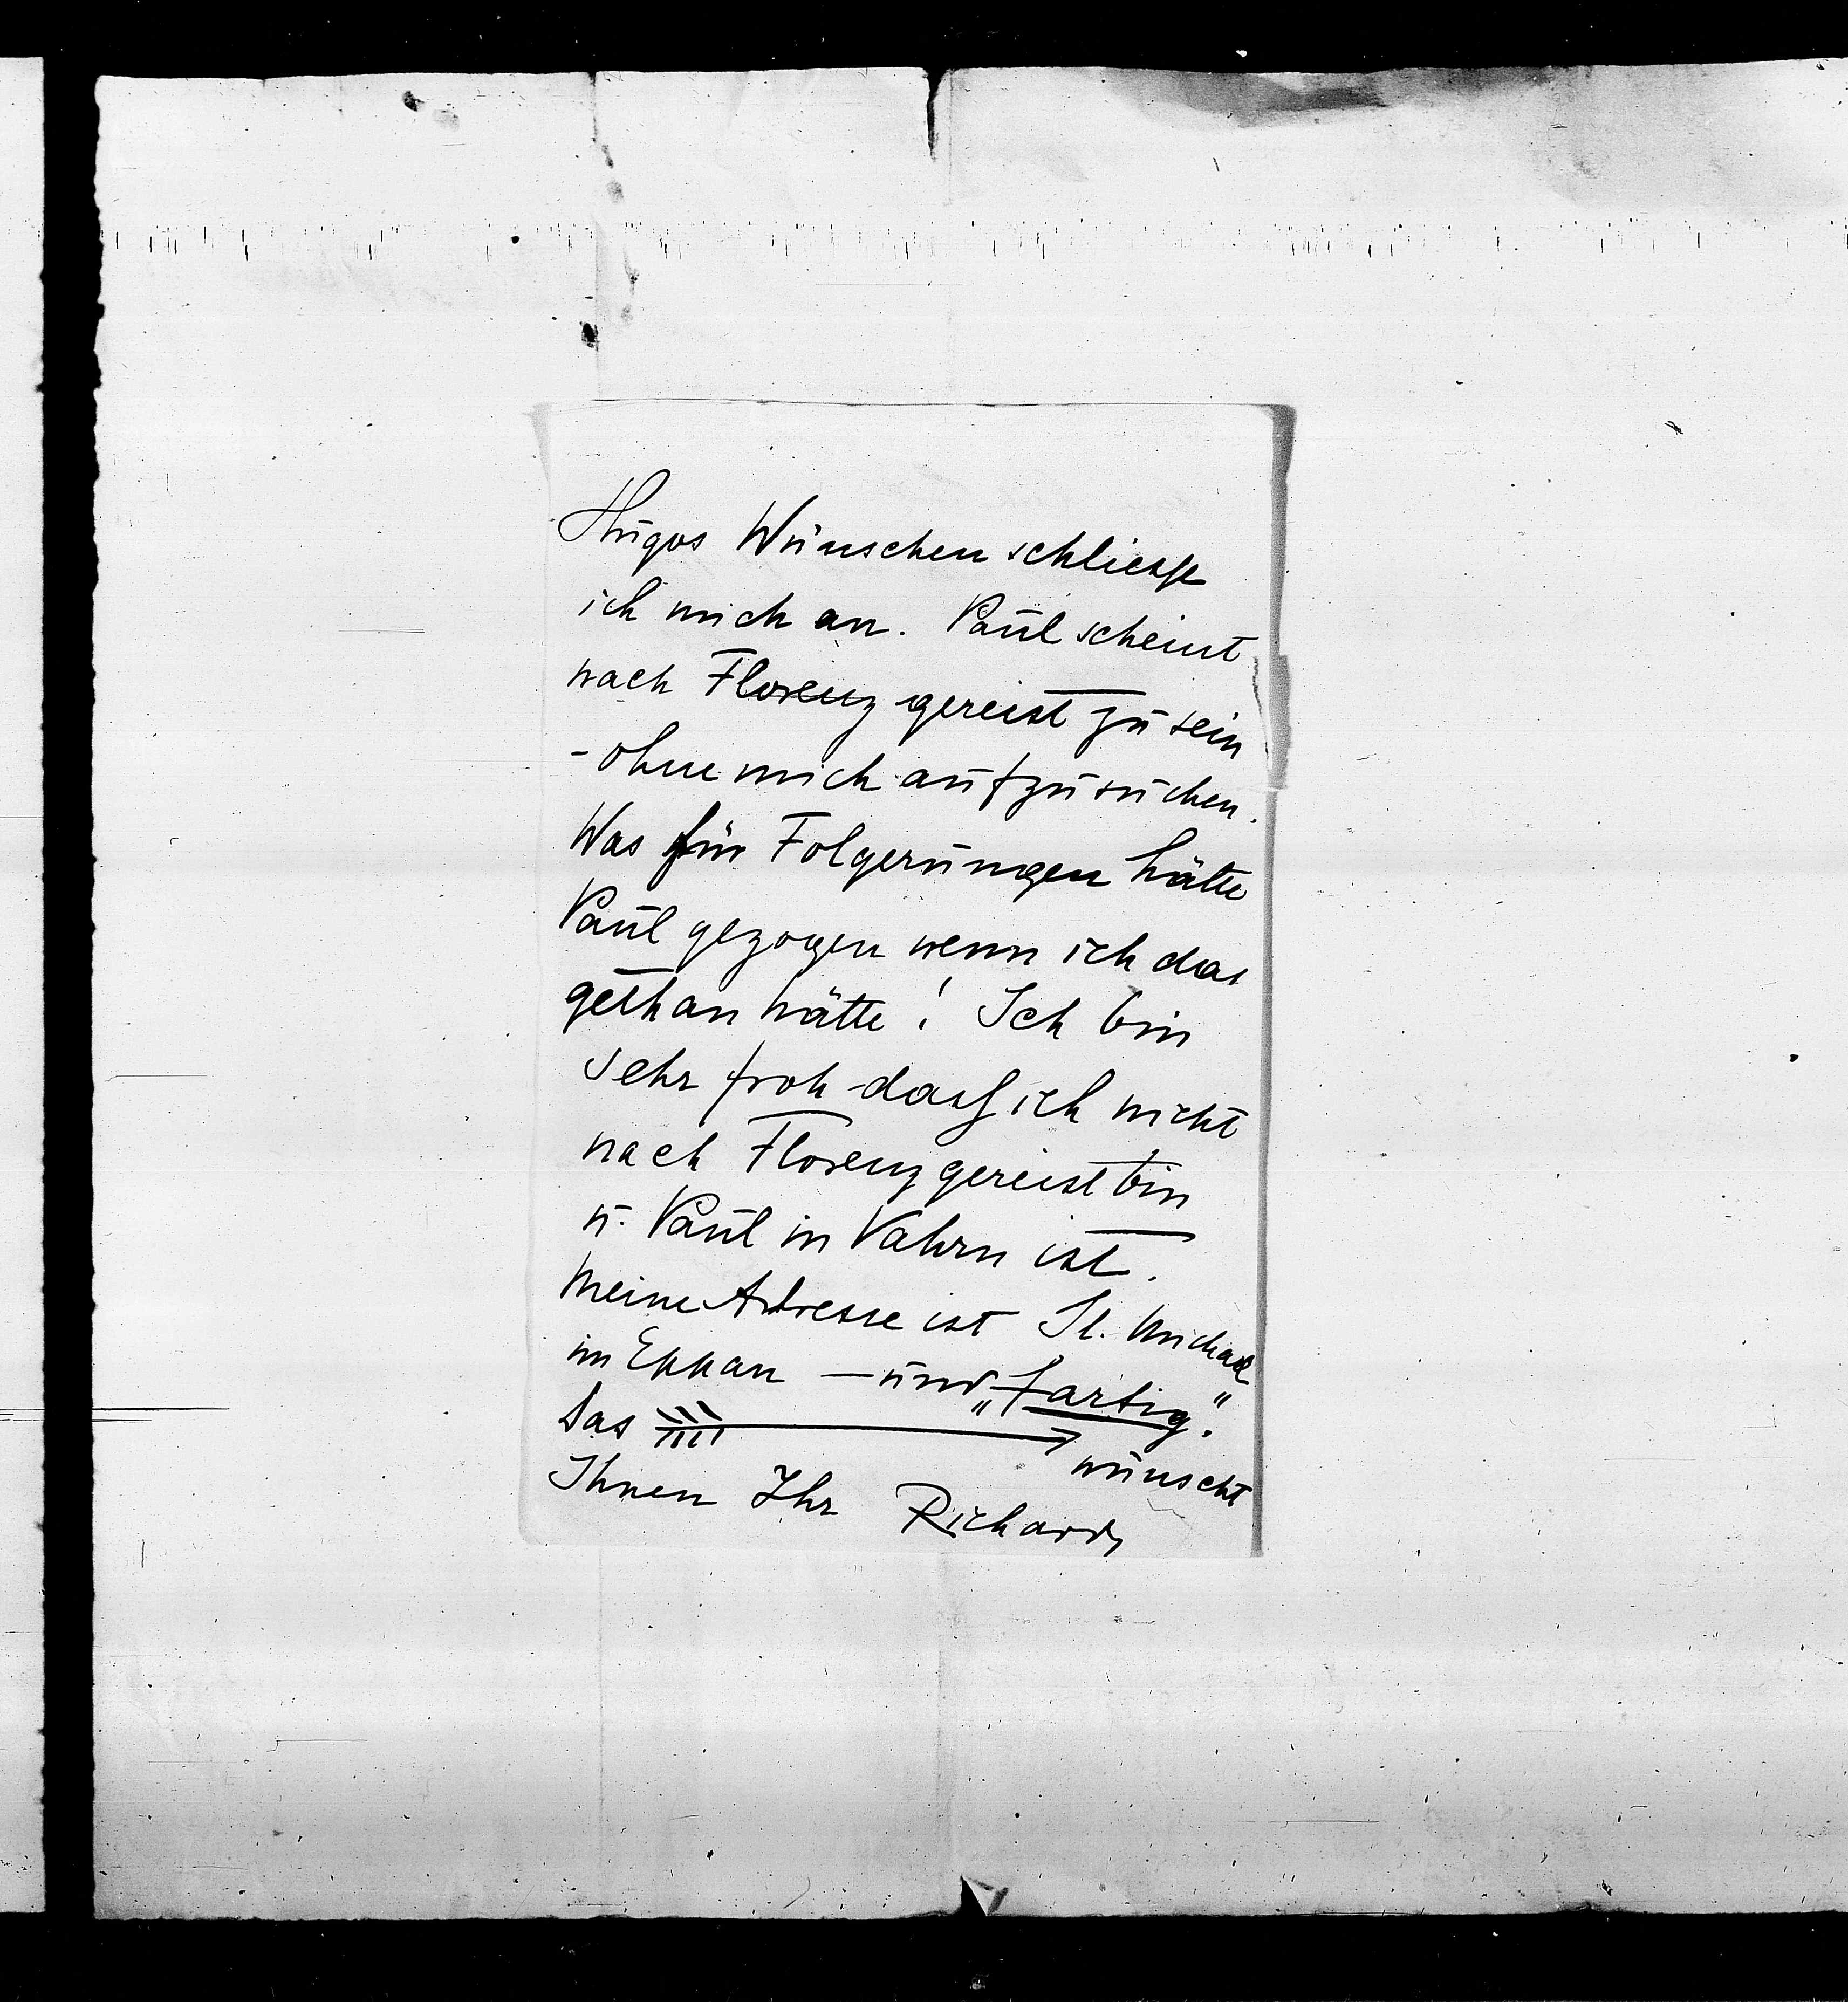 Hugos Wünschen schliesse
ich mich an. Paul scheint
nach Florenz gereist zu sein
- ohne mich aufzusuchen.
Was für Folgerungen hätte
Paul gezogen wenn ich das
gethan hätte! Ich bin
sehr froh dass ich nicht
nach Florenz gereist bin
u. Paul in Vahrn ist.
Meine Adresse ist St. Michael
im Eppan — und „fartig".
Das
wünscht
Ihnen Ihr Richard